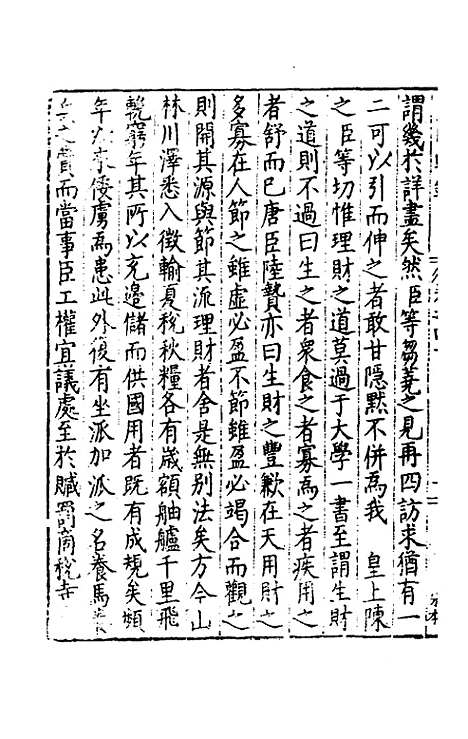 謂幾於詳盡矣然臣等芻蕘之見再四訪求猶有一
二可以引而伸之者敢甘隱默不併為我　皇上陳
之臣等切惟理財之道莫過于大學一書至謂生財
之道則不過曰生之者衆食之者寡為之者疾用之
者舒而已唐臣陸贄亦曰生財之豐歉在天用財之
多寡在人節之雖虛必盈不節雖盈必竭合而觀之
則開其源與節其派理財者舍是無別法矣方今山
林川澤悉入徵輸夏稅秋糧各有歲額舳艫千里飛
輓窮年其所以充邊儲而供國用者既有成規矣頻
年以來倭虜為患此外復有坐派加派之名養馬
之費而當事臣工權宜議處至於贓罰商稅寺